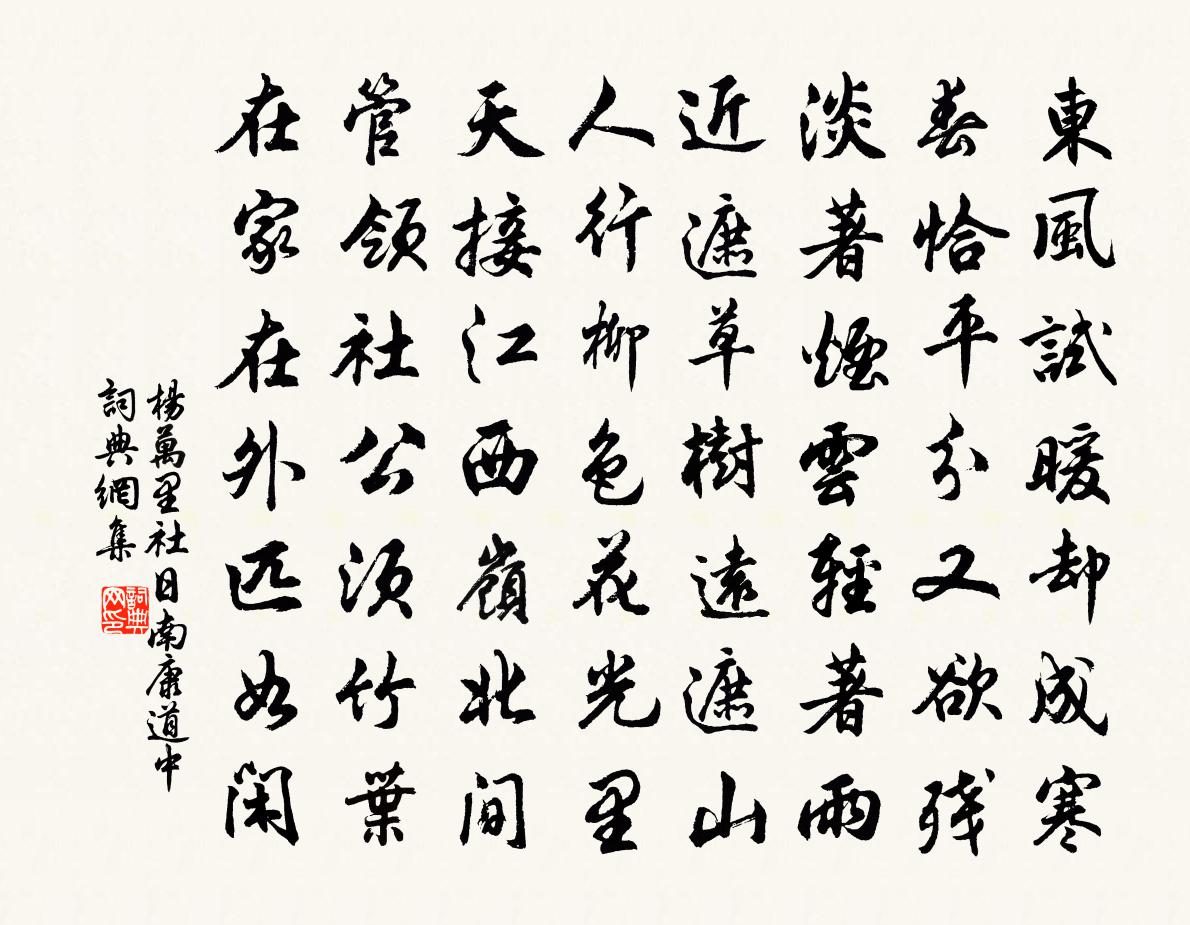 東風試暖却成寒
春恰平分又欲残
淡著煙雲輕著雨
近遮草樹遠遮山
人行柳色花光里
天接江西嶺北間
管領社公須竹葉
在家在外匹如閑
楊萬里社日南康道中
詞典網集
詞典网印